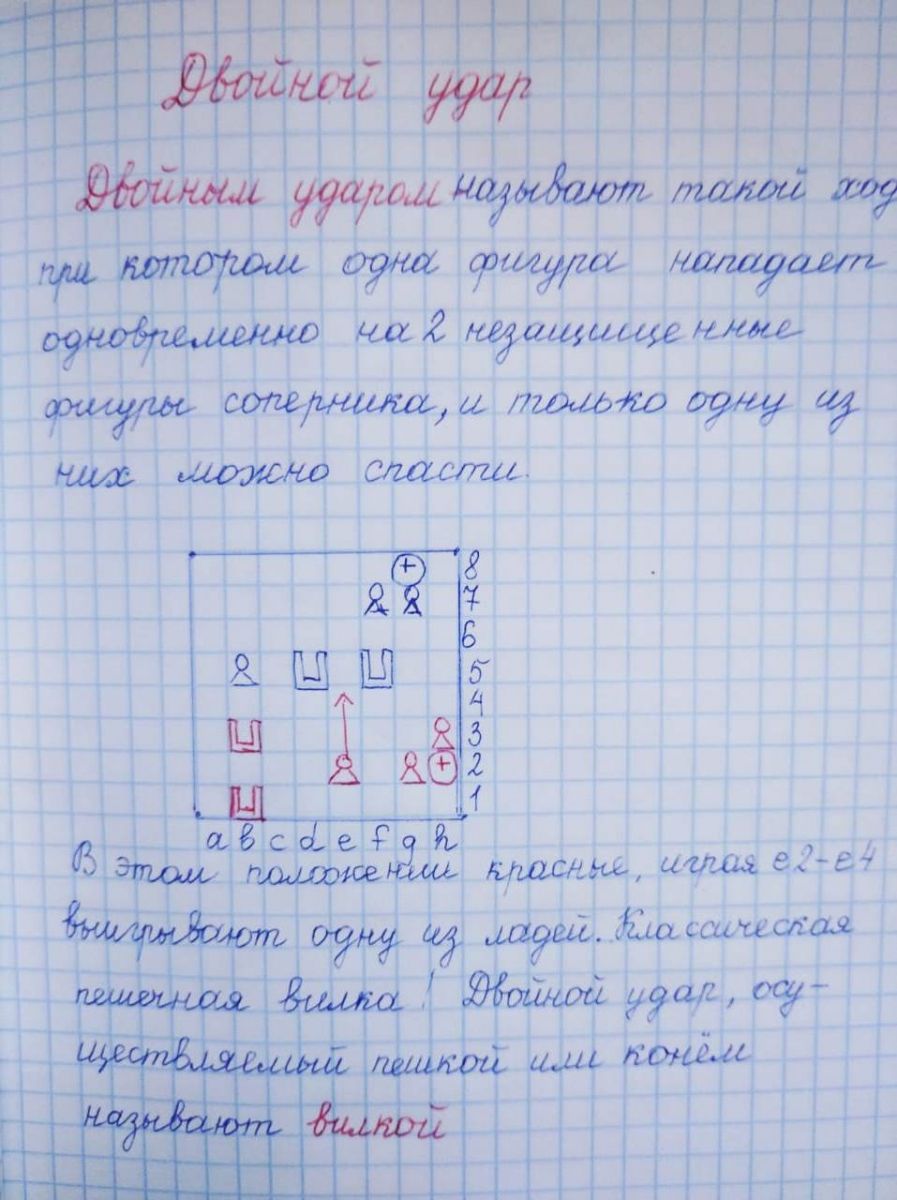 Двойной удар
Двойным ударом называют такой ход
при котором одна фигура нападает
одновременно на 2 незащищенные
фигуры соперника, и только одну из
них можно спасти.
8
7
6
5
4
3
2
1
a b c d e f g h
В этом положении красные, играя e2-e4
выигрывают одну из ладей. Классическая
пешечная вилка! Двойной удар, осу-
ществляемый пешкой или конём
называют вилкой